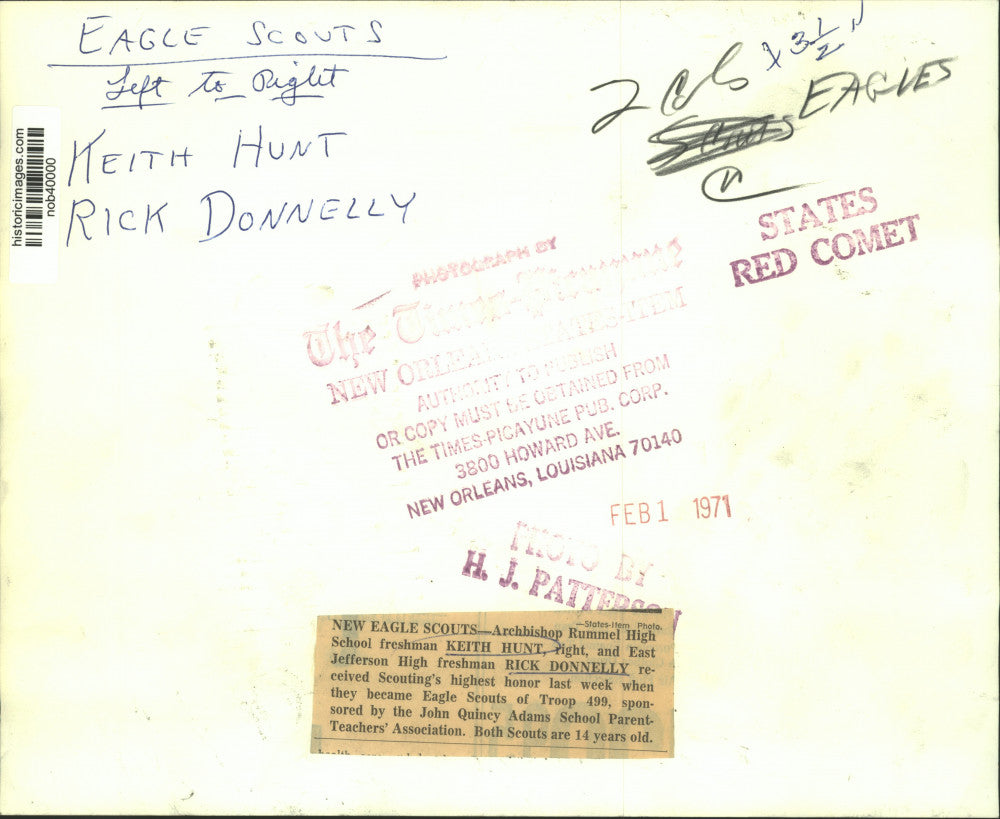 EAGLE SCOUTS
Left to Right
KEITH HUNT
RICK DONNELLY
historicimages.com
nob40000
2 Cols x 3 1/2"
EAGLES
STATES
RED COMET
PHOTOGRAPH BY
The Times-Picayune
NEW ORLEANS STATES-ITEM
AUTHORITY TO PUBLISH
OR COPY MUST BE OBTAINED FROM
THE TIMES-PICAYUNE PUB. CORP.
3800 HOWARD AVE.
NEW ORLEANS, LOUISIANA 70140
FEB 1 1971
PHOTO BY
H. J. PATTERSON
—States-Item Photo.
NEW EAGLE SCOUTS—Archbishop Rummel High
School freshman KEITH HUNT, right, and East
Jefferson High freshman RICK DONNELLY re-
ceived Scouting's highest honor last week when
they became Eagle Scouts of Troop 499, spon-
sored by the John Quincy Adams School Parent-
Teachers' Association. Both Scouts are 14 years old.